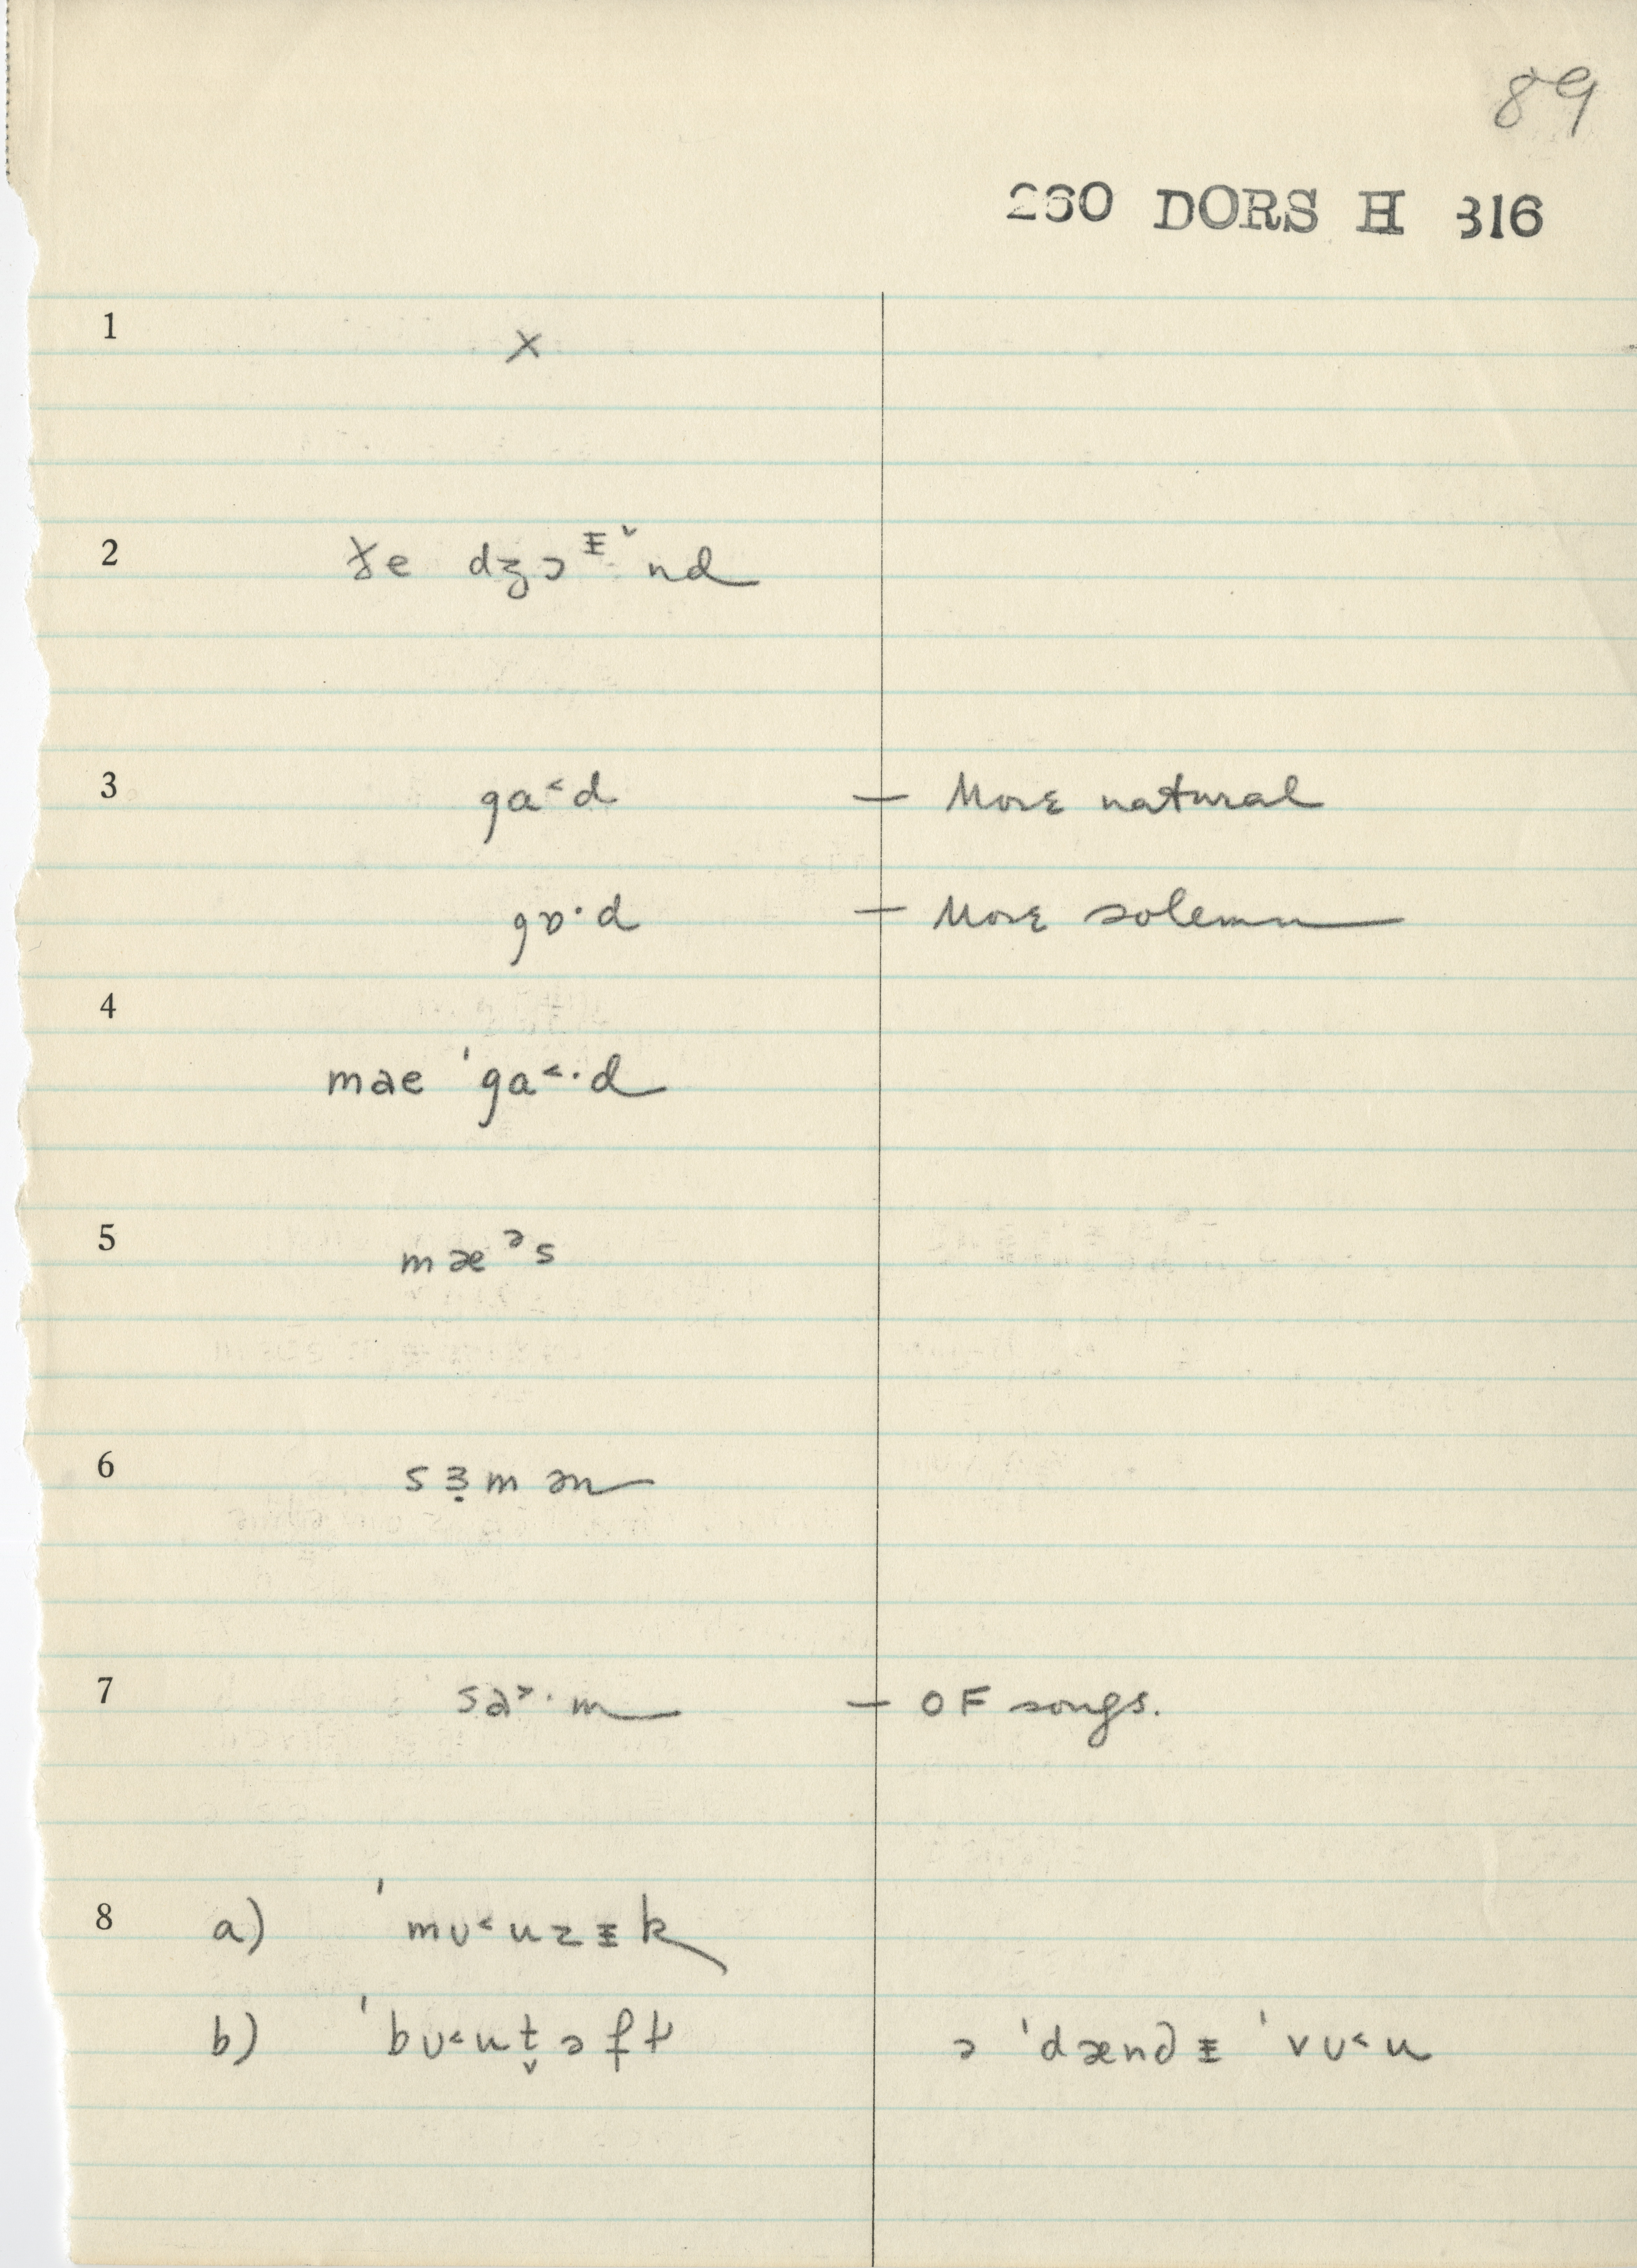 89
260 DORS H 316
1 ×
2 ɟe dʒɔᵻ̌nd
3 ga˂d — More natural
gɒ·d — More solemn
4
mae ˈga˂·d
5 mæᵊs
6 sɜ̣mən
7 sa˃·m — OF songs.
8 a) ˈmʊ˂uzᵻk
b) ˈbʊ˂ut̬əft ə ˈdændᵻ ˈvʊ˂u